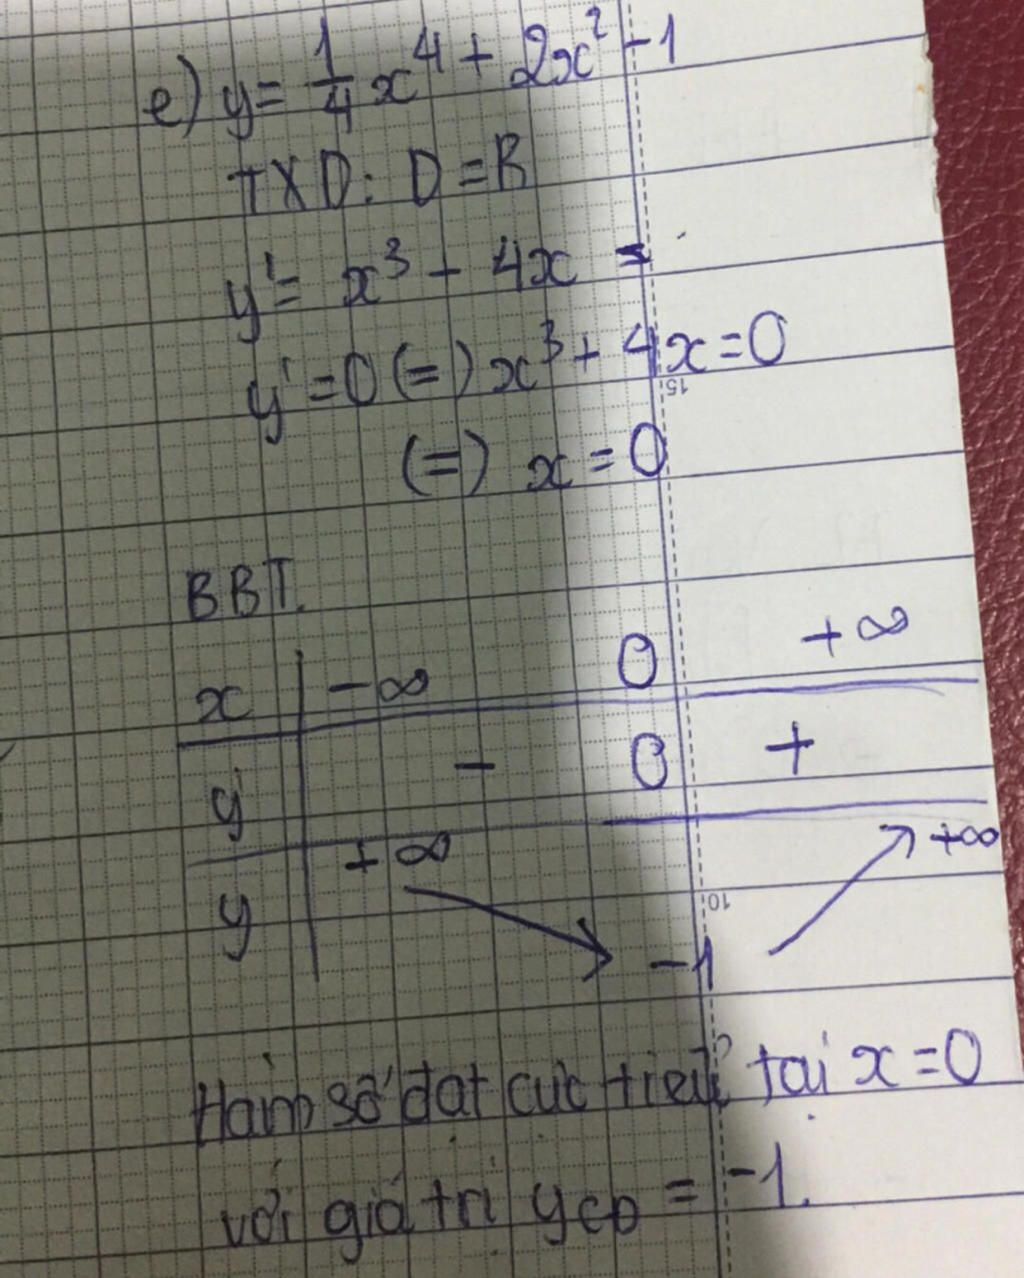 e) y = 1/4 x⁴ + 2x² - 1
TXD: D = R
y' = x³ + 4x =
y' = 0 (=) x³ + 4x = 0
15
(=) x = 0
BBT.
x -∞ 0 +∞
y' - 0 +
y +∞ -1 +∞
10
Hàm số đạt cực tiểu tại x = 0
với giá trị yCD = -1.